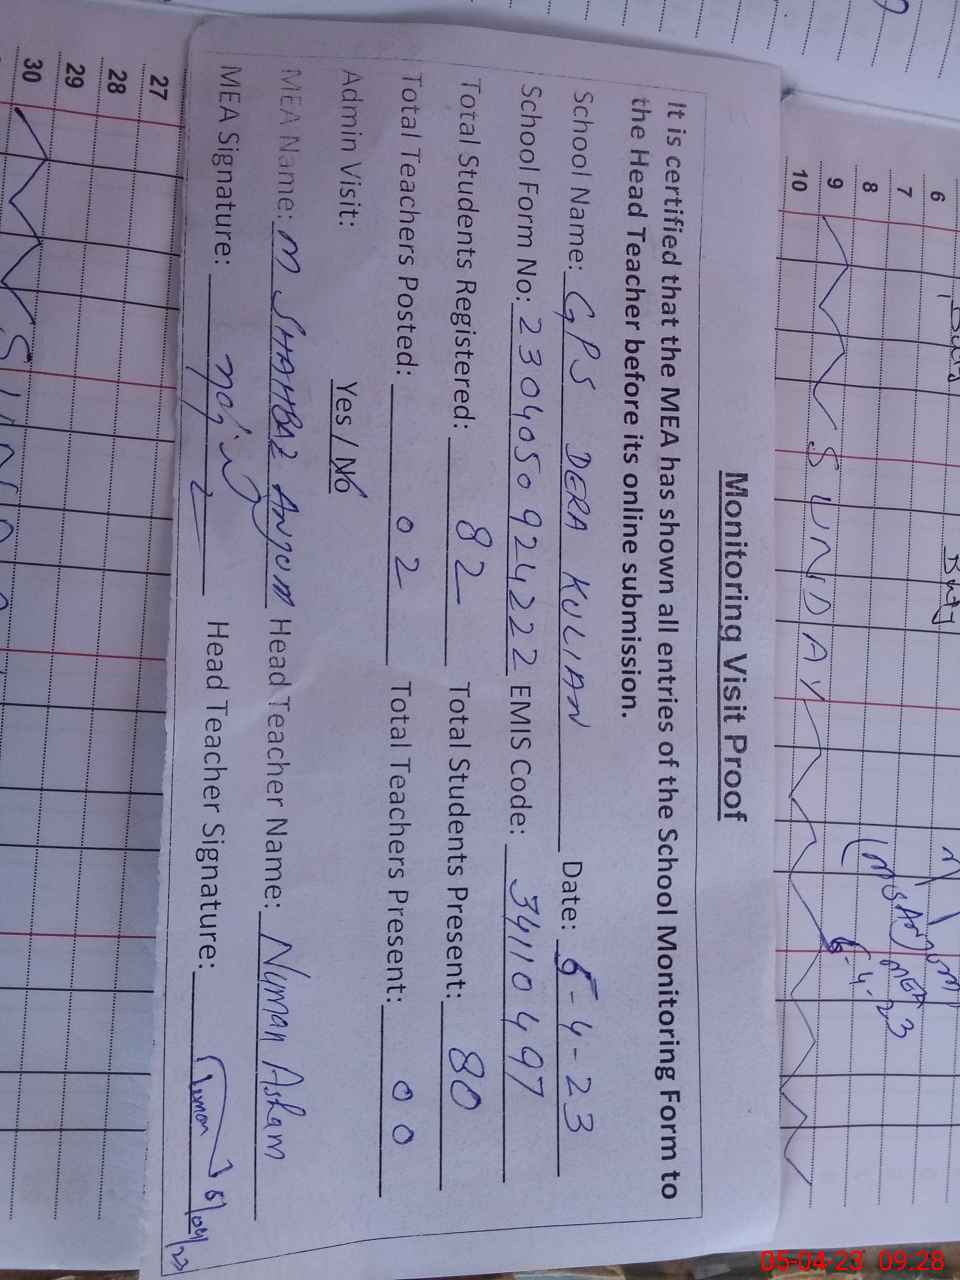 Monitoring Visit Proof
It is certified that the MEA has shown all entries of the School Monitoring Form to
the Head Teacher before its online submission.
School Name: GPS DERA KULIAN Date: 5-4-23
School Form No: 2304050924222 EMIS Code: 34110497
Total Students Registered: 82 Total Students Present: 80
Total Teachers Posted: 02 Total Teachers Present: 00
Admin Visit: Yes / No
MEA Name: M SHAHBAZ ANJUM Head Teacher Name: Numan Aslam
MEA Signature: Head Teacher Signature: 5/04/23
6
7
8
9 SUNDAY
10
MEA
5-4-23
27
28
29
30
05-04-23 09:28